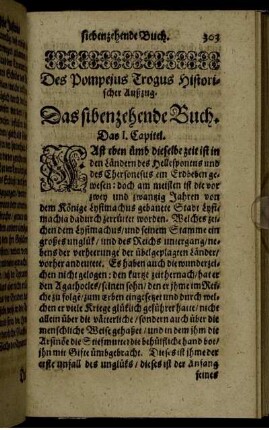 siebenzehende Buch. 303
Des Pompejus Trogus Histori-
scher Außzug.
Das sibenzehende Buch.
Das I. Capitel.
FAst eben ümb dieselbe zeit ist in
den Ländern des Hellespontus und
des Chersonesus ein Erdbeben ge-
wesen: doch am meisten ist die vor
zwey und zwanzig Jahren von
dem Könige Lysimachus gebauete Stadt Lysi-
machia dadurch zerrüttet worden. Welches zei-
chen dem Lysimachus/ und seinem Stamme ein
großes unglük/ und des Reichs untergang/ ne-
benst der verhierung der übelgeplagten Länder/
vorher andeutet. Es haben auch die wunderzei-
chen nicht gelogen: den kurze zeit hernach/ hat er
den Agathocles/ seinen sohn/ den er ihme im Rei-
che zu folge/ zum Erben eingesetzt/ und durch wel-
chen er viele Kriege glüklich geführet hatte/ nicht
allein über die vätterliche/ sondern auch über die
menschliche Weise gehaßet/ und in dem ihm die
Arsinöe die Stiefmutter die behülfliche hand bot/
ihn mit Gifte ümbgebracht. Dieses ist ihme der
erste unfall des unglüks/ dieses ist der Anfang
seines